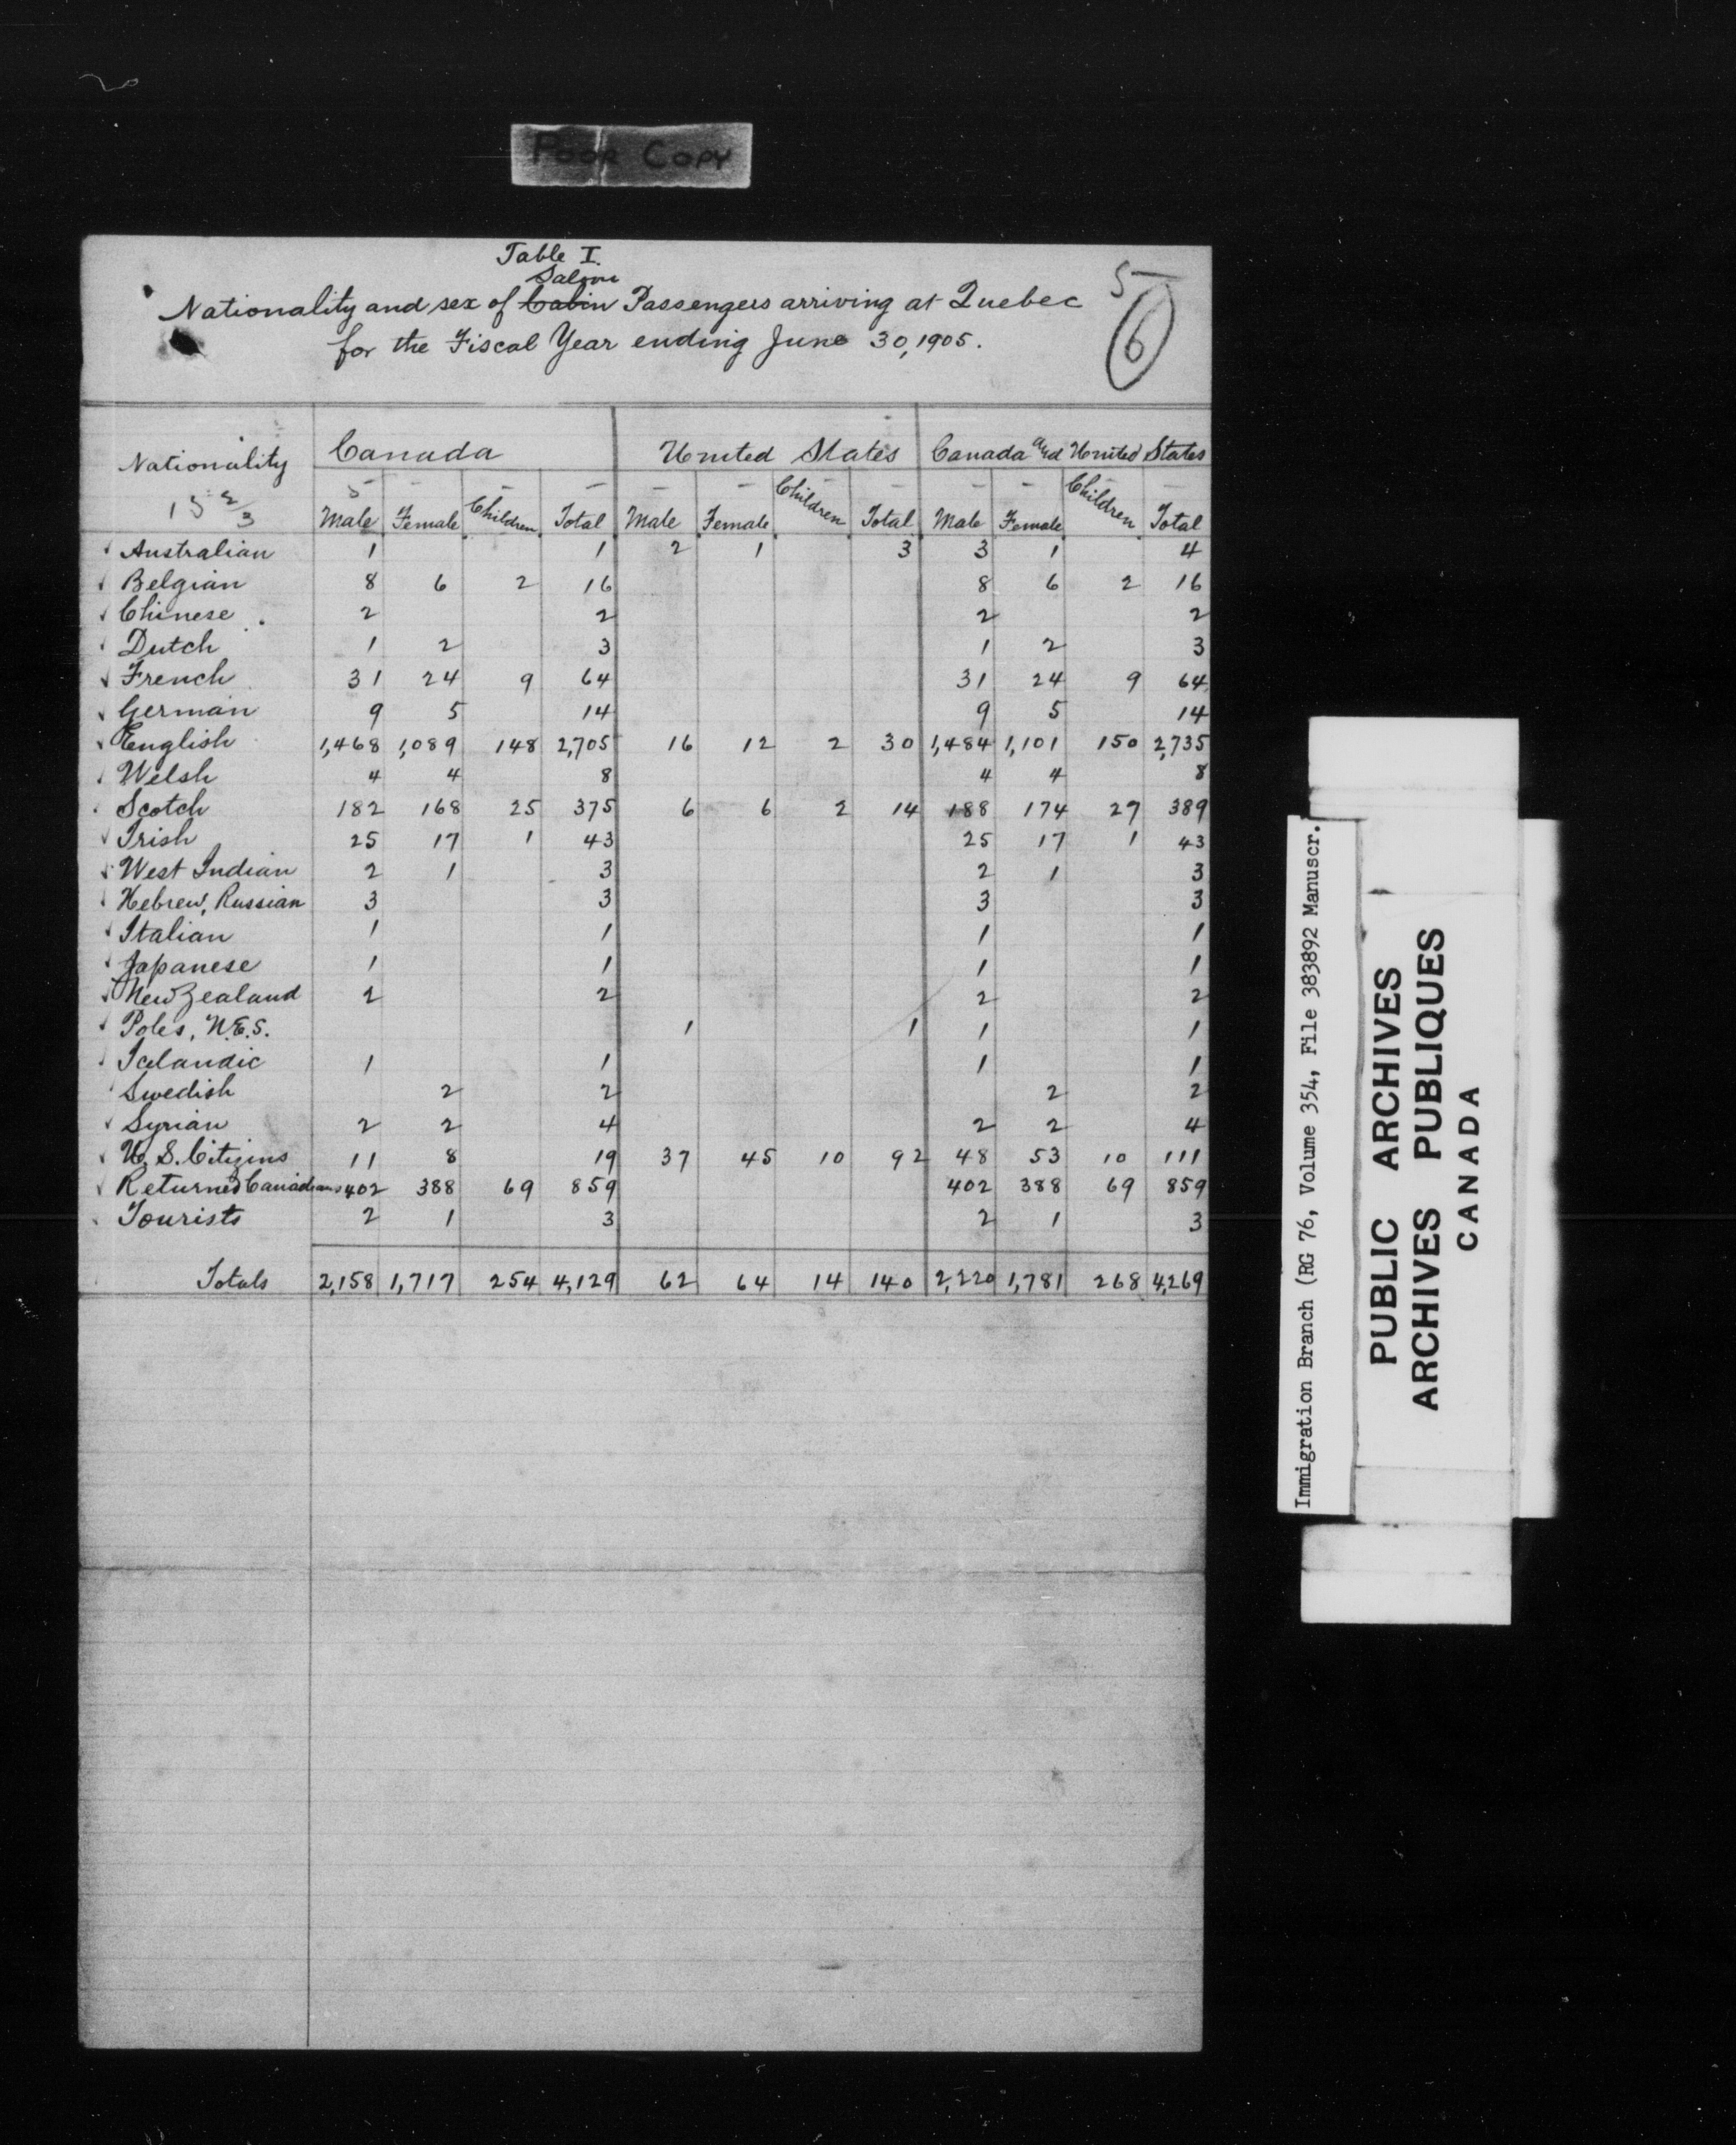 Poor Copy
Table I.
Saloon
Nationality and sex of Cabin Passengers arriving at Quebec
for the Fiscal Year ending June 30, 1905.
5
6
Nationality Canada United States Canada and United States
Male Female Children Total Male Female Children Total Male Female Children Total
Australian 1 1 2 1 3 3 1 4
Belgian 8 6 2 16 8 6 2 16
Chinese 2 2 2 2
Dutch 1 2 3 1 2 3
French 31 24 9 64 31 24 9 64
German 9 5 14 9 5 14
English 1,468 1,089 148 2,705 16 12 2 30 1,484 1,101 150 2,735
Welsh 4 4 8 4 4 8
Scotch 182 168 25 375 6 6 2 14 188 174 27 389
Irish 25 17 1 43 25 17 1 43
West Indian 2 1 3 2 1 3
Hebrew, Russian 3 3 3 3
Italian 1 1 1 1
Japanese 1 1 1 1
New Zealand 2 2 2 2
Poles, N.E.S. 1 1 1 1
Icelandic 1 1 1 1
Swedish 2 2 2 2
Syrian 2 2 4 2 2 4
U.S. Citizens 11 8 19 37 45 10 92 48 53 10 111
Returned Canadians 402 388 69 859 402 388 69 859
Tourists 2 1 3 2 1 3
Totals 2,158 1,717 254 4,129 62 64 14 140 2,220 1,781 268 4,269
Immigration Branch (RG 76, Volume 354, File 383892 Manuscr.
PUBLIC ARCHIVES
ARCHIVES PUBLIQUES
CANADA